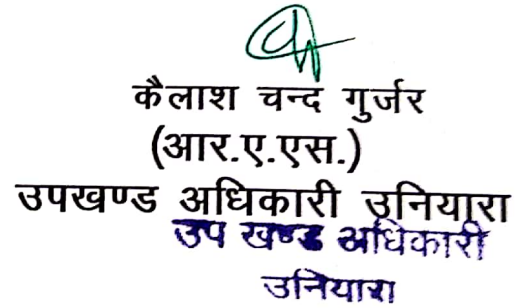 कैलाश चन्द गुर्जर
(आर.ए.एस.)
उपखण्ड अधिकारी उनियारा
उप खण्ड अधिकारी
उनियारा